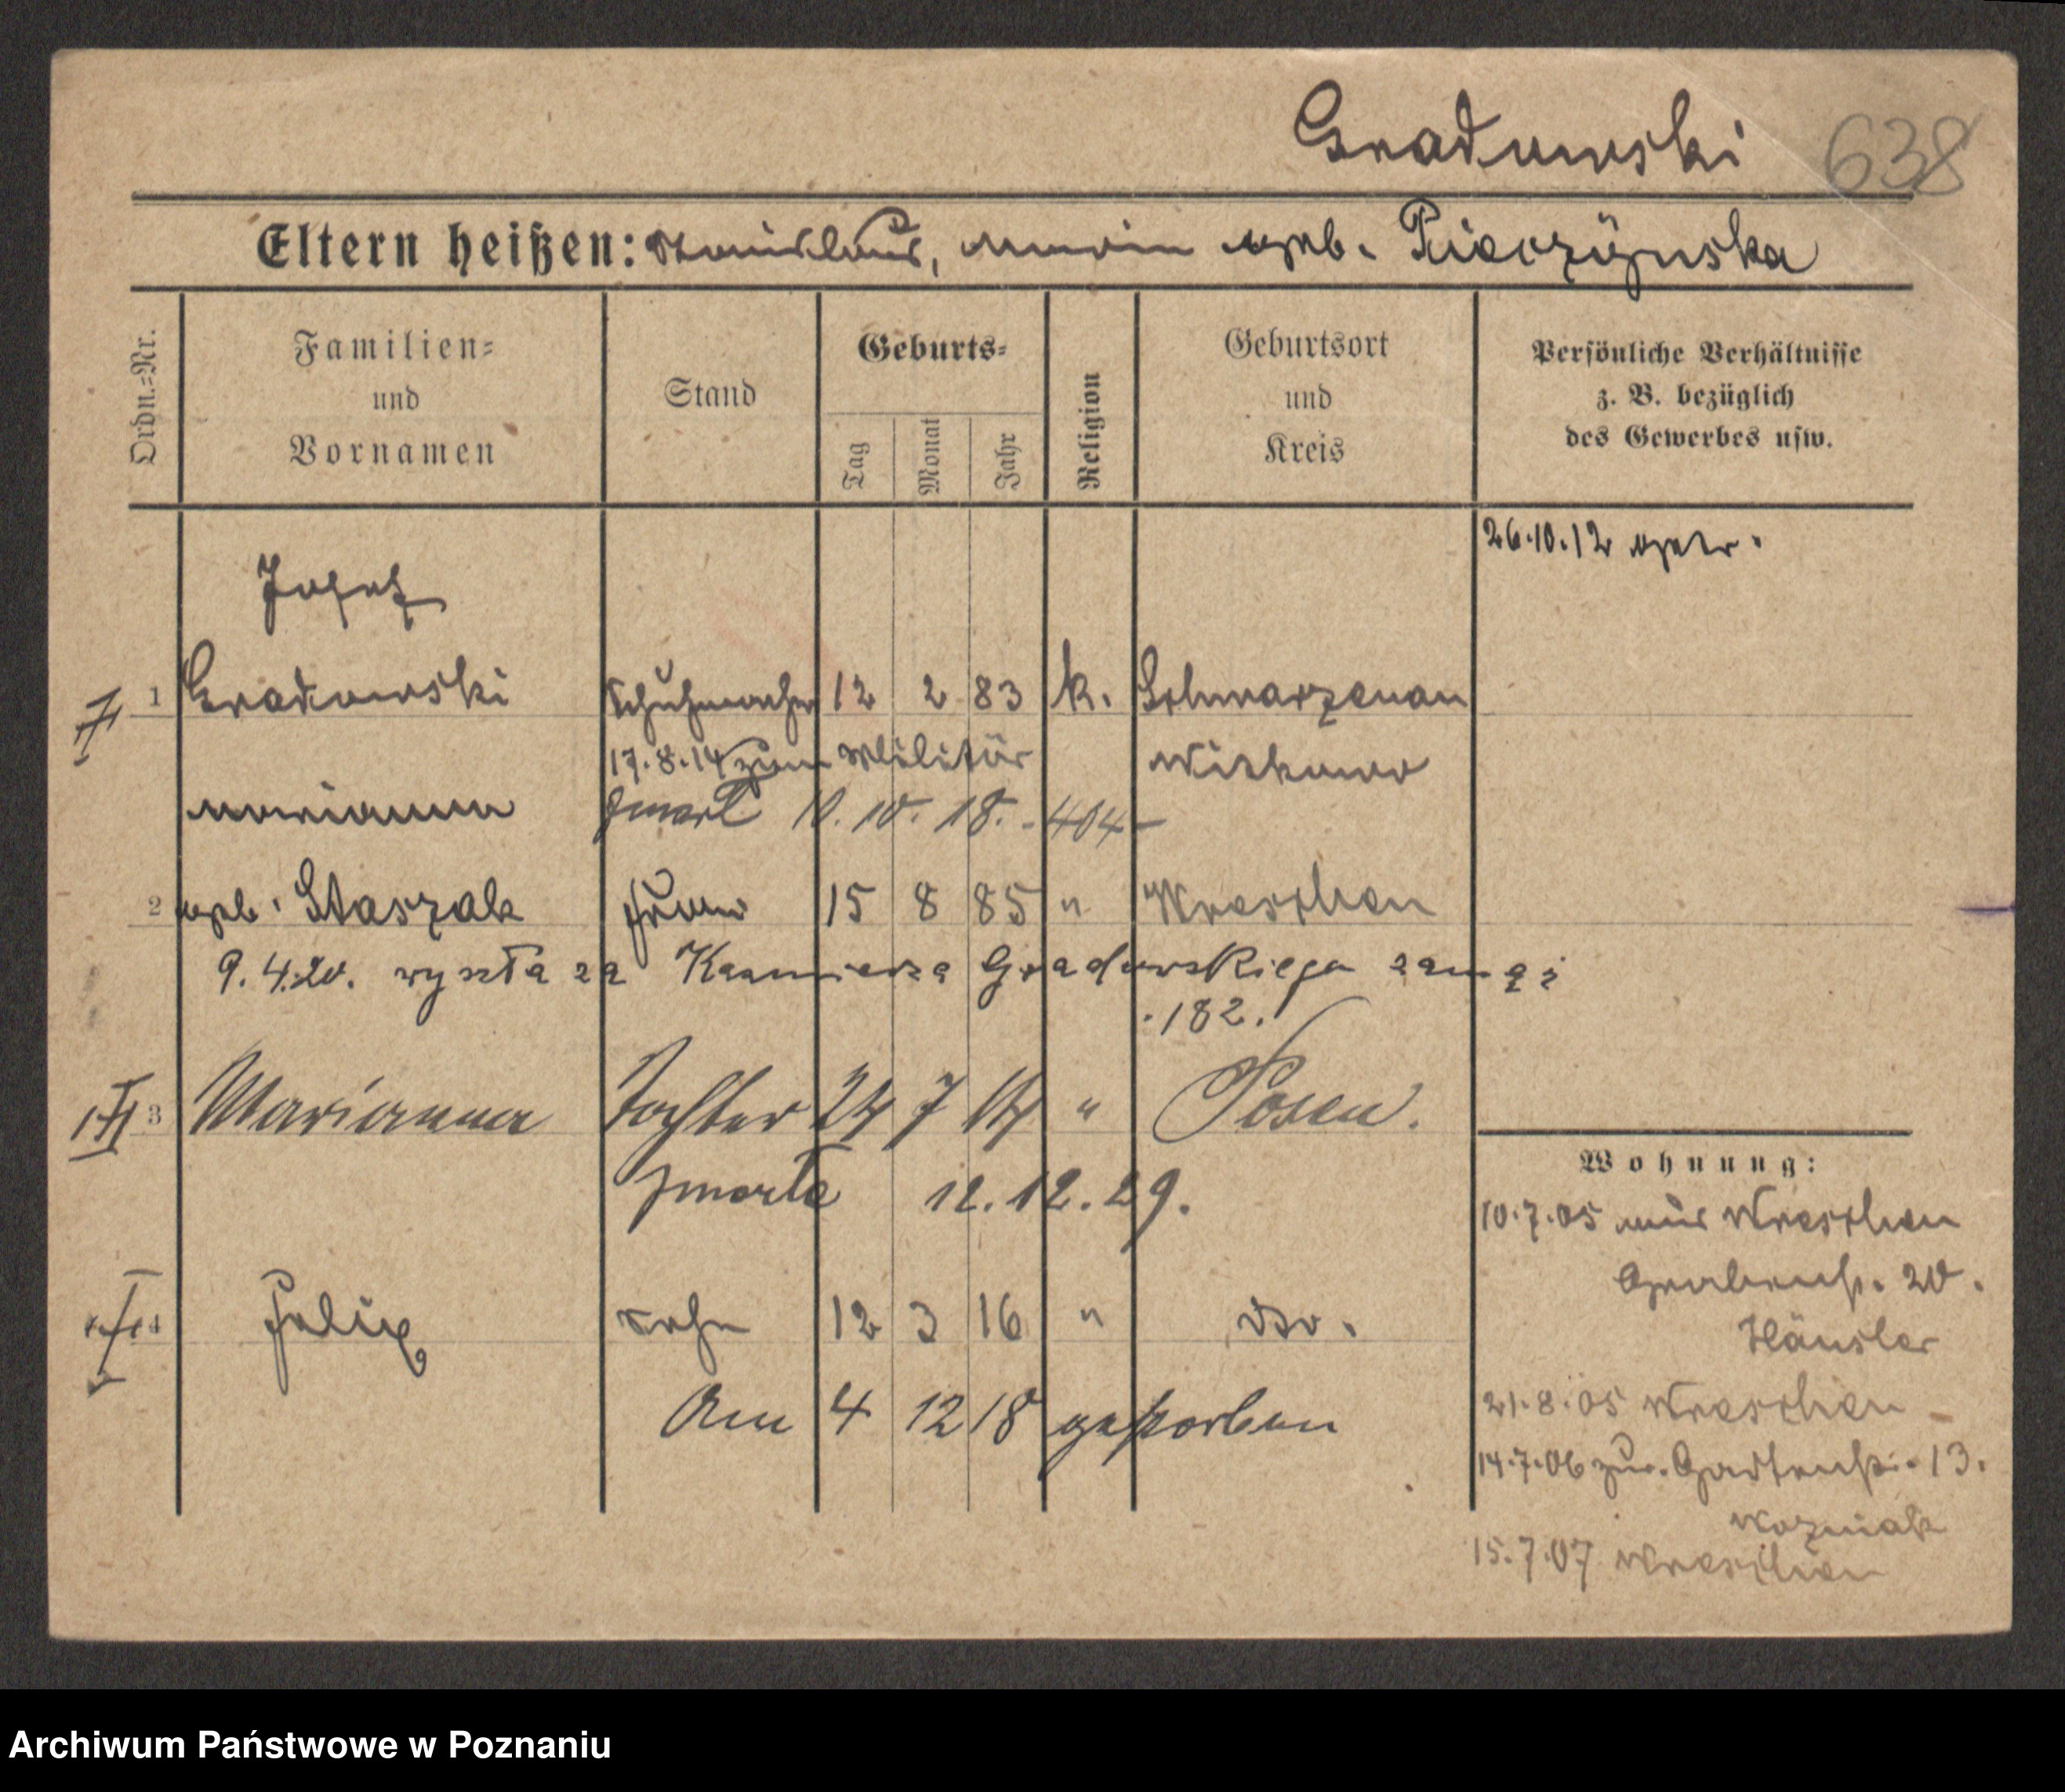 Gradowski 638
Eltern heißen: Stanislaus, Maria geb. Pieczÿnska
Ordn.=Nr.
Familien=
und
Vornamen
Stand
Geburts=
Tag
Monat
Jahr
Religion
Geburtsort
und
Kreis
Persönliche Verhältnisse
z. B. bezüglich
des Gewerbes usw.
26.10.12 getr.
Josef
1 Gradowski Schuhmacher 12 2 83 k. Schwarzenau
17.8.14 zum Militär Witkowo
Marianna zmarł 10.10.18. -404-
2 geb. Staszak Frau 15 8 85 " Wreschen
9.4.20. wyszła za Kazmierza Gradowskiego zamąż
182.
3 Marianna Tochter 24 7 14 " Posen.
zmarła 12.12.29.
4 Felix Sohn 12 3 16 " do.
Am 4 12 18 gestorben
Wohnung:
10.7.05 aus Wreschen
Grabenstr. 20.
Häusler
21.8.05 Wreschen
14.7.06 zur. Gartenstr. 13.
Wozniak
15.7.07 Wreschen
Archiwum Państwowe w Poznaniu